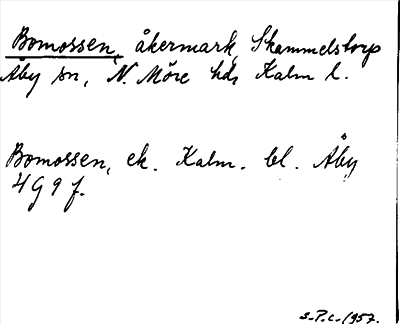 Bomossen, åkermark, Skammelstorp
Åby sn, N. Möre hd, Kalm l.
Bomossen, ek. Kalm. bl. Åby
4G9f.
S.P.C. 1957.